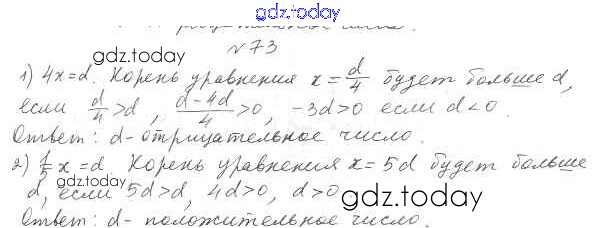 gdz.today
№73
gdz.today
1) 4x=d. Корень уравнения x = d/4 будет больше d,
если d/4 > d, (d-4d)/4 > 0, -3d>0 если d<0.
Ответ: d- отрицательное число.
2) 1/5 x = d. Корень уравнения x = 5d будет больше
d, если 5d>d, 4d>0, d>0
gdz.today
gdz.today
Ответ: d- положительное число.